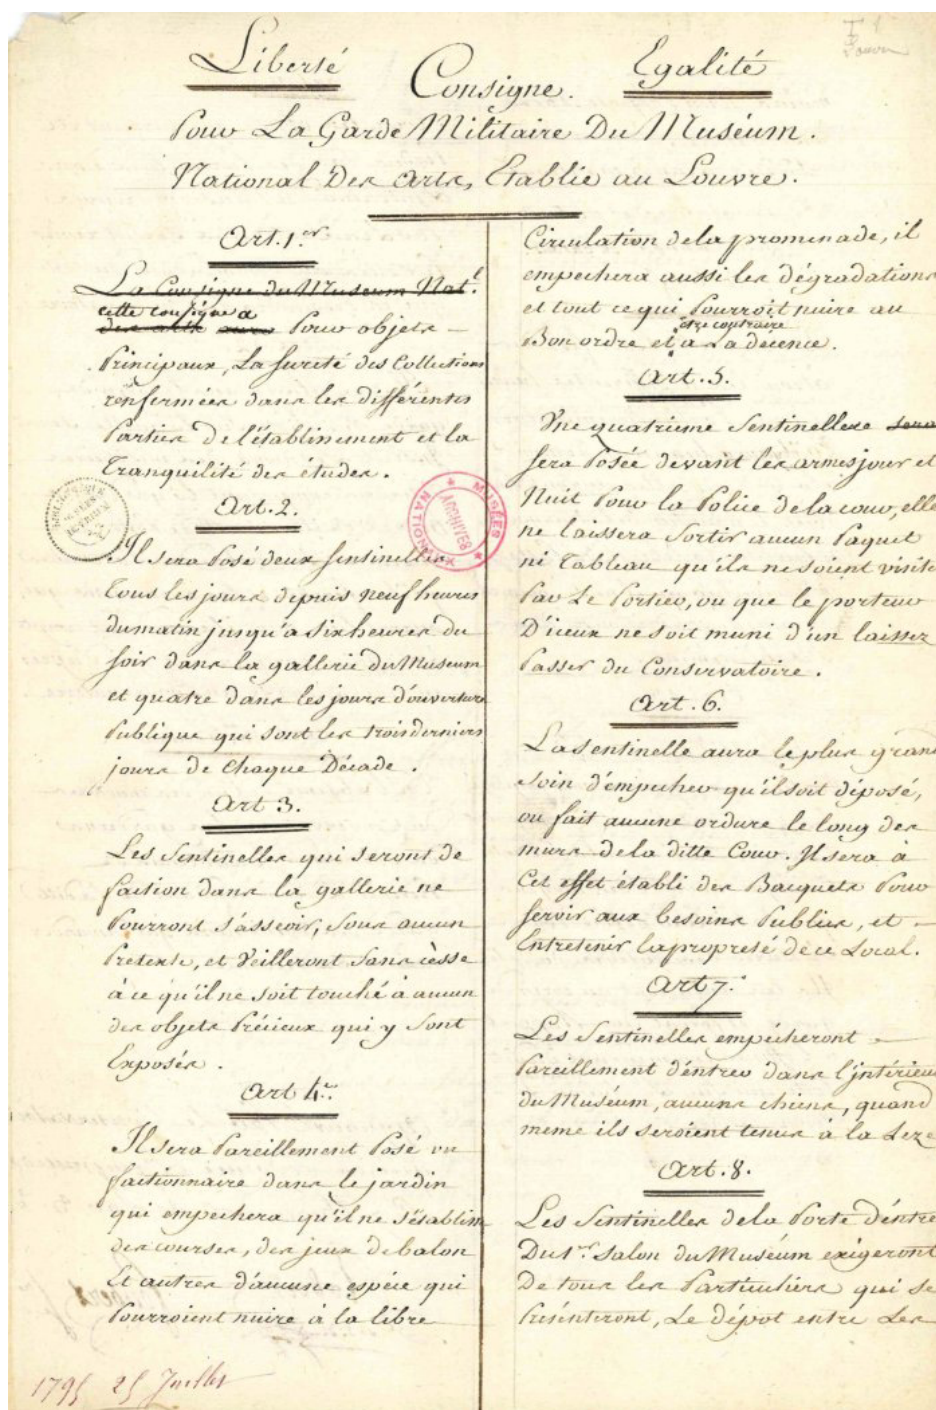 Liberté Egalité
Consigne.
Pour La Garde Militaire Du Muséum.
National Des Arts, Etablie au Louvre.
Art. 1.er
La Consigne du Museum Nat.l
cette consigne a
des arts aura Pour objets
Principaux, La sureté des Collections
renfermées dans les différentes
Parties de l'établissement et la
Tranquilité des études.
Art. 2.
Il sera Posé deux sentinelles
Tous les jours depuis neuf heures
du matin jusqu'a six heures du
soir dans la gallerie du Museum
et quatre dans les jours d'ouverture
Publique qui sont les trois derniers
jours de Chaque Décade.
Art 3.
Les Sentinelles qui seront de
faction dans la gallerie ne
Pourront s'asseoir, sous aucun
Pretexte, et Veilleront sans cèsse
à ce qu'il ne soit touché à aucun
des objets Précieux qui y sont
Exposés.
Art 4.
Il sera Pareillement Posé un
factionnaire dans le jardin
qui empechera qu'il ne s'établisse
des courses, des jeux de balon
Et autres d'aucune espéce qui
Pourroient nuire à la libre
1795 25 Juillet
Circulation de la promenade, il
empechera aussi les dégradations
et tout ce qui Pourroit nuire au
être contraire
Bon ordre et a La décence.
Art. 5.
Une quatrieme Sentinelle sera
sera Posée devant les armes jour et
Nuit Pour la Police de la cour, elle
ne laissera Sortir aucun Paquet
ni Tableau qu'ils ne soient visité
Par Le Portier, ou que le porteur
D'iceux ne soit muni d'un laissez
Passer du Conservatoire.
Art. 6.
La sentinelle aura le plus grand
soin d'empecher qu'il soit déposé,
ou fait aucune ordure le long des
murs de la ditte Cour. Il sera à
Cet effet établi des Bacquets Pour
servir aux besoins Publics, et
Entretenir la propreté de ce Local.
Art 7.
Les Sentinelles empécheront
Pareillement d'éntrer dans l'intérieur
du Muséum, aucuns chiens, quand
meme ils seroient tenus à la Leze
Art. 8.
Les Sentinelles de la Porte d'éntrée
Du 1.er salon du Muséum exigeront
De tous les Particuliers qui se
Présenteront, Le dépot entre Les
MUSÉES NATIONAUX
ARCHIVES